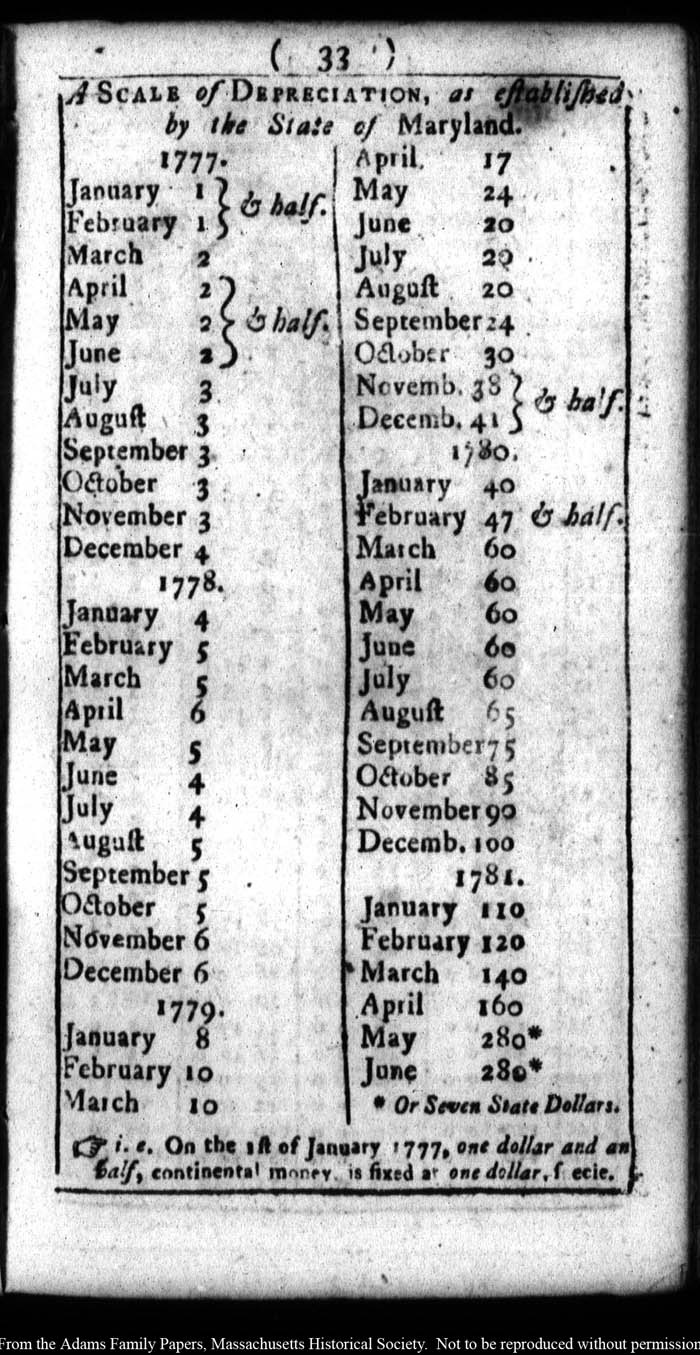 ( 33 )
A SCALE of DEPRECIATION, as eſtabliſhed
by the State of Maryland.
1777.
January 1
February 1 } & half.
March 2
April 2
May 2 } & half.
June 2
July 3
Auguſt 3
September 3
October 3
November 3
December 4
1778.
January 4
February 5
March 5
April 6
May 5
June 4
July 4
Auguſt 5
September 5
October 5
November 6
December 6
1779.
January 8
February 10
March 10
April. 17
May 24
June 20
July 20
Auguſt 20
September 24
October 30
Novemb. 38
Decemb. 41 } & half.
1780.
January 40
February 47 & half.
March 60
April 60
May 60
June 60
July 60
Auguſt 65
September 75
October 85
November 90
Decemb. 100
1781.
January 110
February 120
March 140
April 160
May 280*
June 280*
* Or Seven State Dollars.
☞ i. e. On the 1ſt of January 1777, one dollar and an
half, continental money, is fixed at one dollar, ſpecie.
From the Adams Family Papers, Massachusetts Historical Society. Not to be reproduced without permission